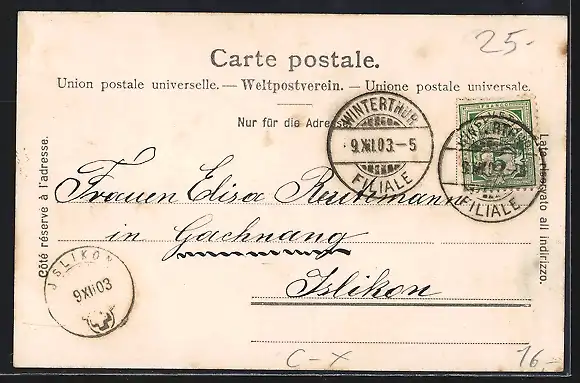 25.-
Carte postale.
Union postale universelle. — Weltpostverein. — Unione postale universale.
Nur für die Adresse.
WINTERTHUR
9.XII.03.-5
FILIALE
FRANCO
WINTERTHUR
FILIALE
Côté réservé à l'adresse.
Lato riservato all indirizzo.
Frauen Elisa Reutemann
in Gachnang
Islikon
JSLIKON
9 XII 03
C-X
16.-